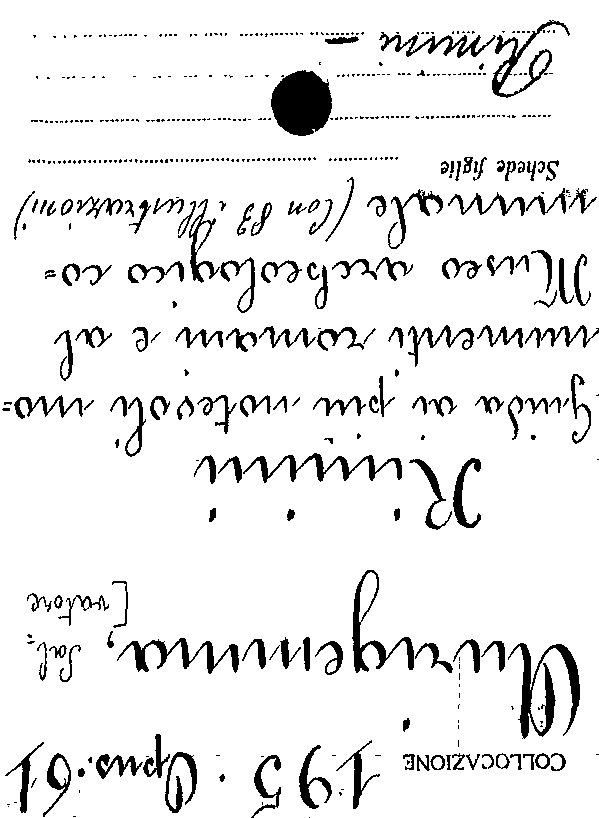 COLLOCAZIONE 195. Opus. 61
Aurigemma, Sal=
[vatore
Rimini
Guida ai più notevoli mo=
numenti romani e al
Museo archeologico co=
munale (Con 83 illustrazioni)
Schede figlie
Rimini –